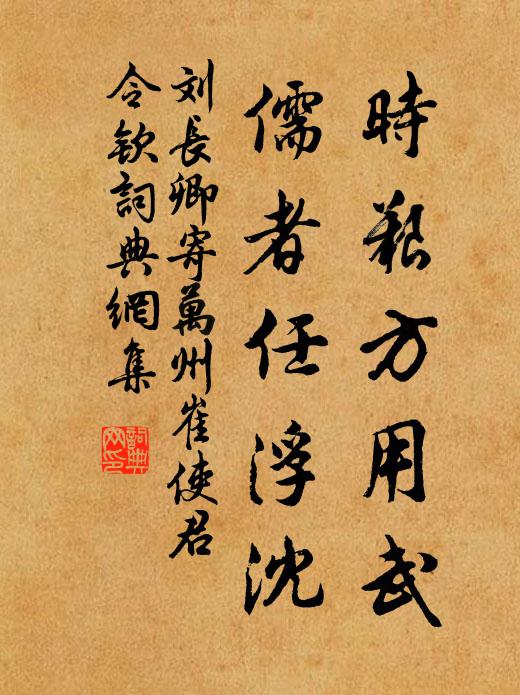 時艱方用武
儒者任浮沈
刘長卿寄萬州崔使君
令欽詞典網集
詞典
网印